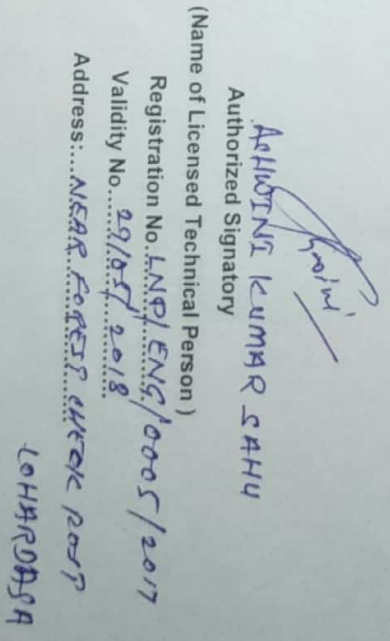 Ashwini
ASHWINI KUMAR SAHU
Authorized Signatory
(Name of Licensed Technical Person )
Registration No. LNP/ENG/0005/2017
Validity No...... 29/05/2018
Address:....NEAR FOREST CHECK POST
LOHARDAGA